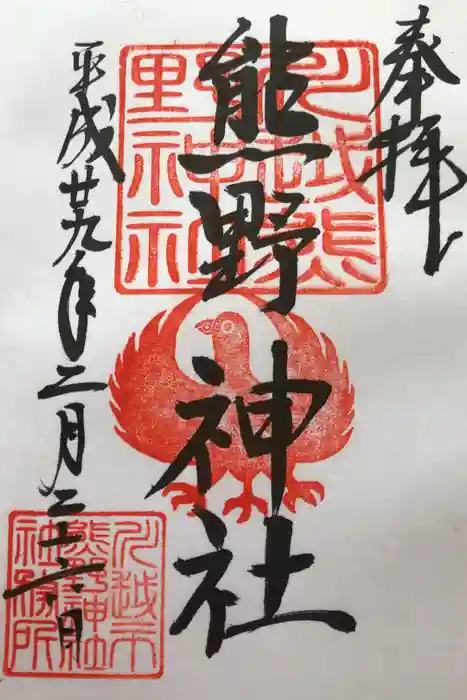 奉拝
熊野神社
平成廿九年二月二十六日
川越熊
野神社
川越市
熊野神社
社務所